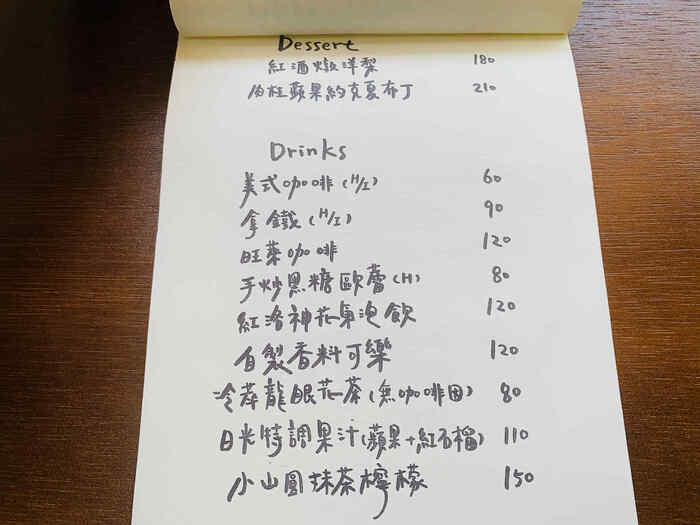 Dessert
紅酒燉洋梨 180
肉桂蘋果約克夏布丁 210
Drinks
美式咖啡(H/I) 60
拿鐵(H/I) 90
旺萊咖啡 120
手炒黑糖歐蕾(H) 80
紅洛神花氣泡飲 120
自製香料可樂 120
冷萃龍眼花茶(無咖啡因) 80
日光特調果汁(蘋果+紅石榴) 110
小山圓抹茶檸檬 150